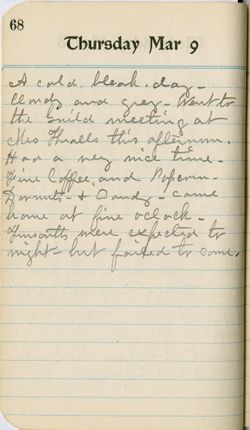 68
Thursday Mar 9
A cold, bleak, day -
Cloudy and grey - Went to
the Guild meeting at
Mrs Thralls this afternoon.
Had a very nice time -
Fine Coffee, and Popcorn -
Donuts - & Candy - came
home at five oclock -
were expected to
night - but failed to come.